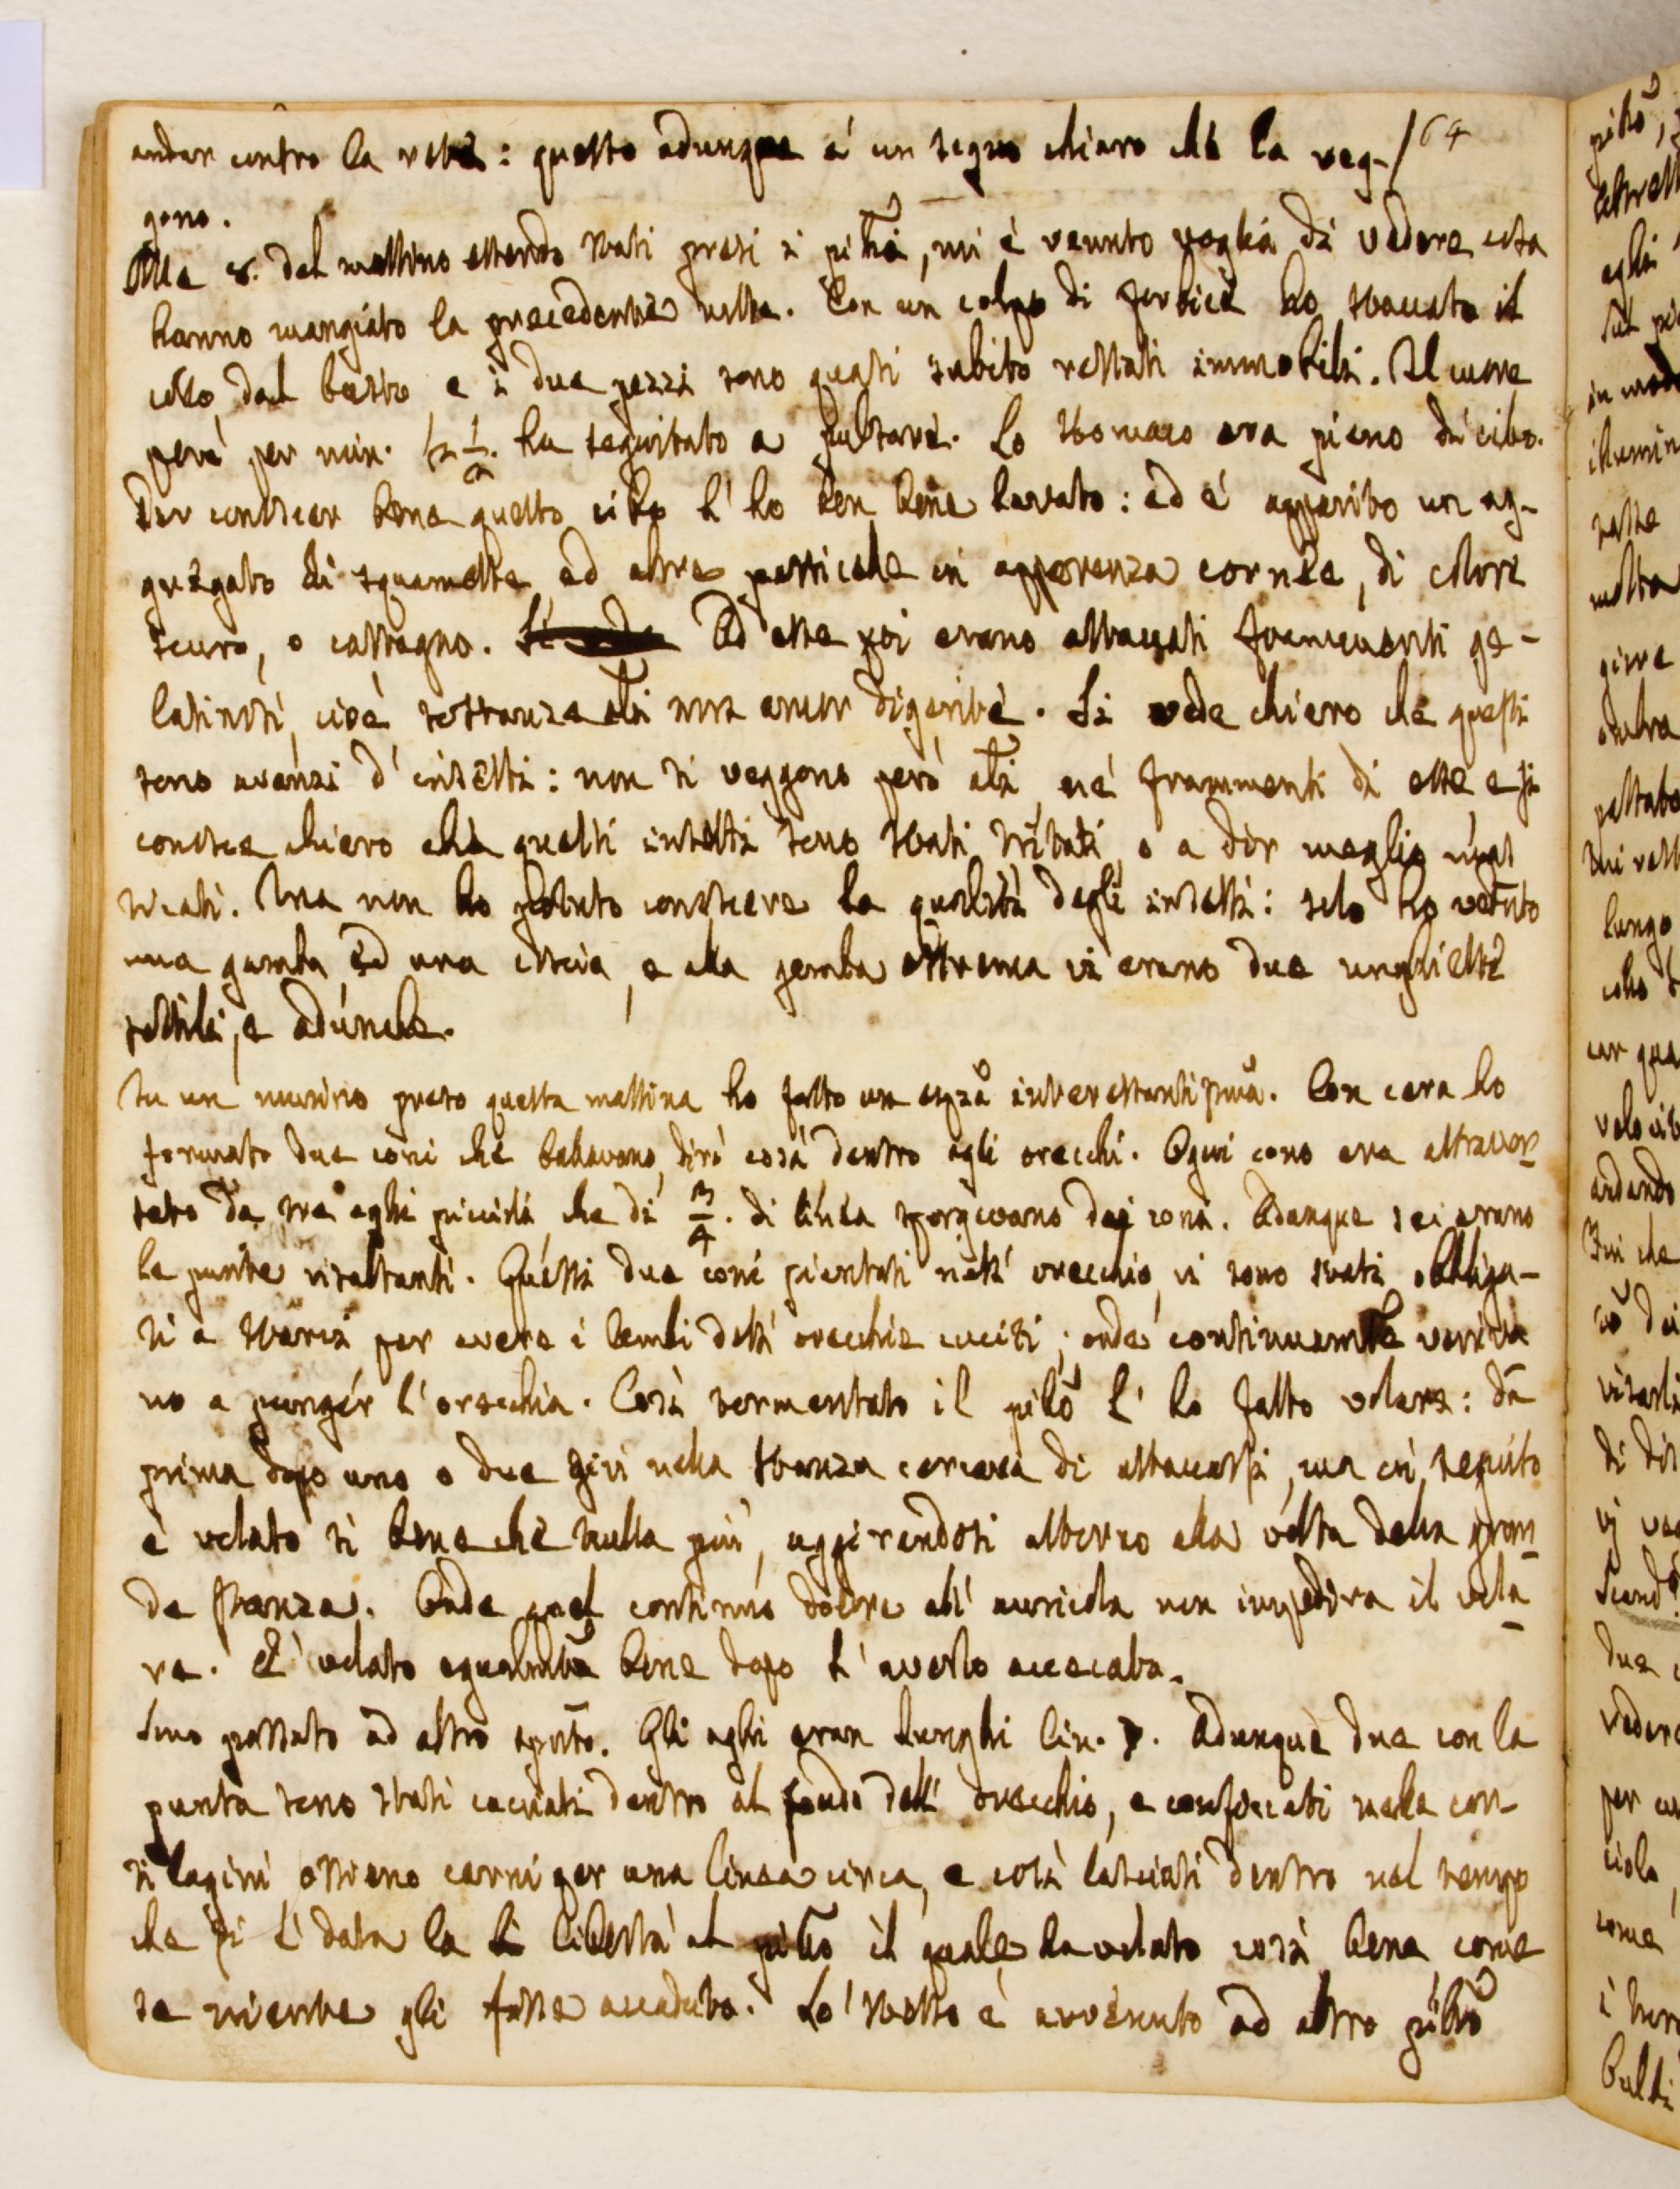 andar contro la rete: questo adunque è un segno chiaro che la veg- / 64
gono.
Alle 8. del mattino essendo stati presi 2 pihi, mi è venuto voglia di vedere cosa
hanno mangiato la precedente notte. Con un colpo di forbice ho staccato il
collo dal busto, e i due pezzi sono quasi subito restati immobili. Il cuore
però per min. 12 1/2. ha seguitato a pulsare. Lo stomaco era pieno di cibo.
Per conoscer bene questo cibo l'ho ben bene lavato: ed è apparito un ag-
gregato di squamette, ed altre particelle in apparenza cornee, di colore
scuro, o castagno. Ad esse poi erano attaccati frammenti ge-
latinosi, cioè sostanze ali non ancor digerite. Si vede chiaro che questi
sono avanzi d'insetti: non si veggono però ali, nè frammenti di esse e si
conosce chiaro che questi insetti sono stati tritati, o a dir meglio mas
ticati. Ma non ho potuto conoscere la qualità degli insetti: solo ho veduto
una gamba, ed una coscia, e alla gamba estrema vi erano due unghiette
sottili, e adunche.
Su un murino preso questa mattina ho fatto un espza interessantissima. Con cera ho
formato due coni che bastavano, dirò così dentro agli orecchi. Ogni cono era attraver-
sato da tre aghi piccioli, che di 3/4. di linea sporgevano dai coni. Adunque sei erano
le punte risaltanti. Questi due coni piantati nell'orecchio, vi sono stati obbliga-
ti a starvi per avere i lembi dell'orecchie cuciti; onde continuamte venida
no a punger l'orecchia. Così tormentato il pihō l'ho fatto volare: da
prima dopo uno o due giri nella stanza cercava di attaccarsi, ma in seguito
è volato sì bene che nulla più, aggirandosi attorno alla volta della gran
de stanza. Onde quel continuo dolore all'auricola non impediva il vola
re. E' volato egualmte bene dopo l'averlo accecato.
Sono passato ad altro espmto. Gli aghi eran lunghi lin. 7. Adunque due con la
punta sono stati cacciati dentro al fondo dell'orecchio, e conficcati nelle car-
tilagini ossieno carni per una linea circa, e così lasciati dentro nel tempo
che si è data la li libertà al pihō il quale ha volato così bene, come
se niente gli fosse accaduto. Lo stesso è avvenuto ad altro pihō